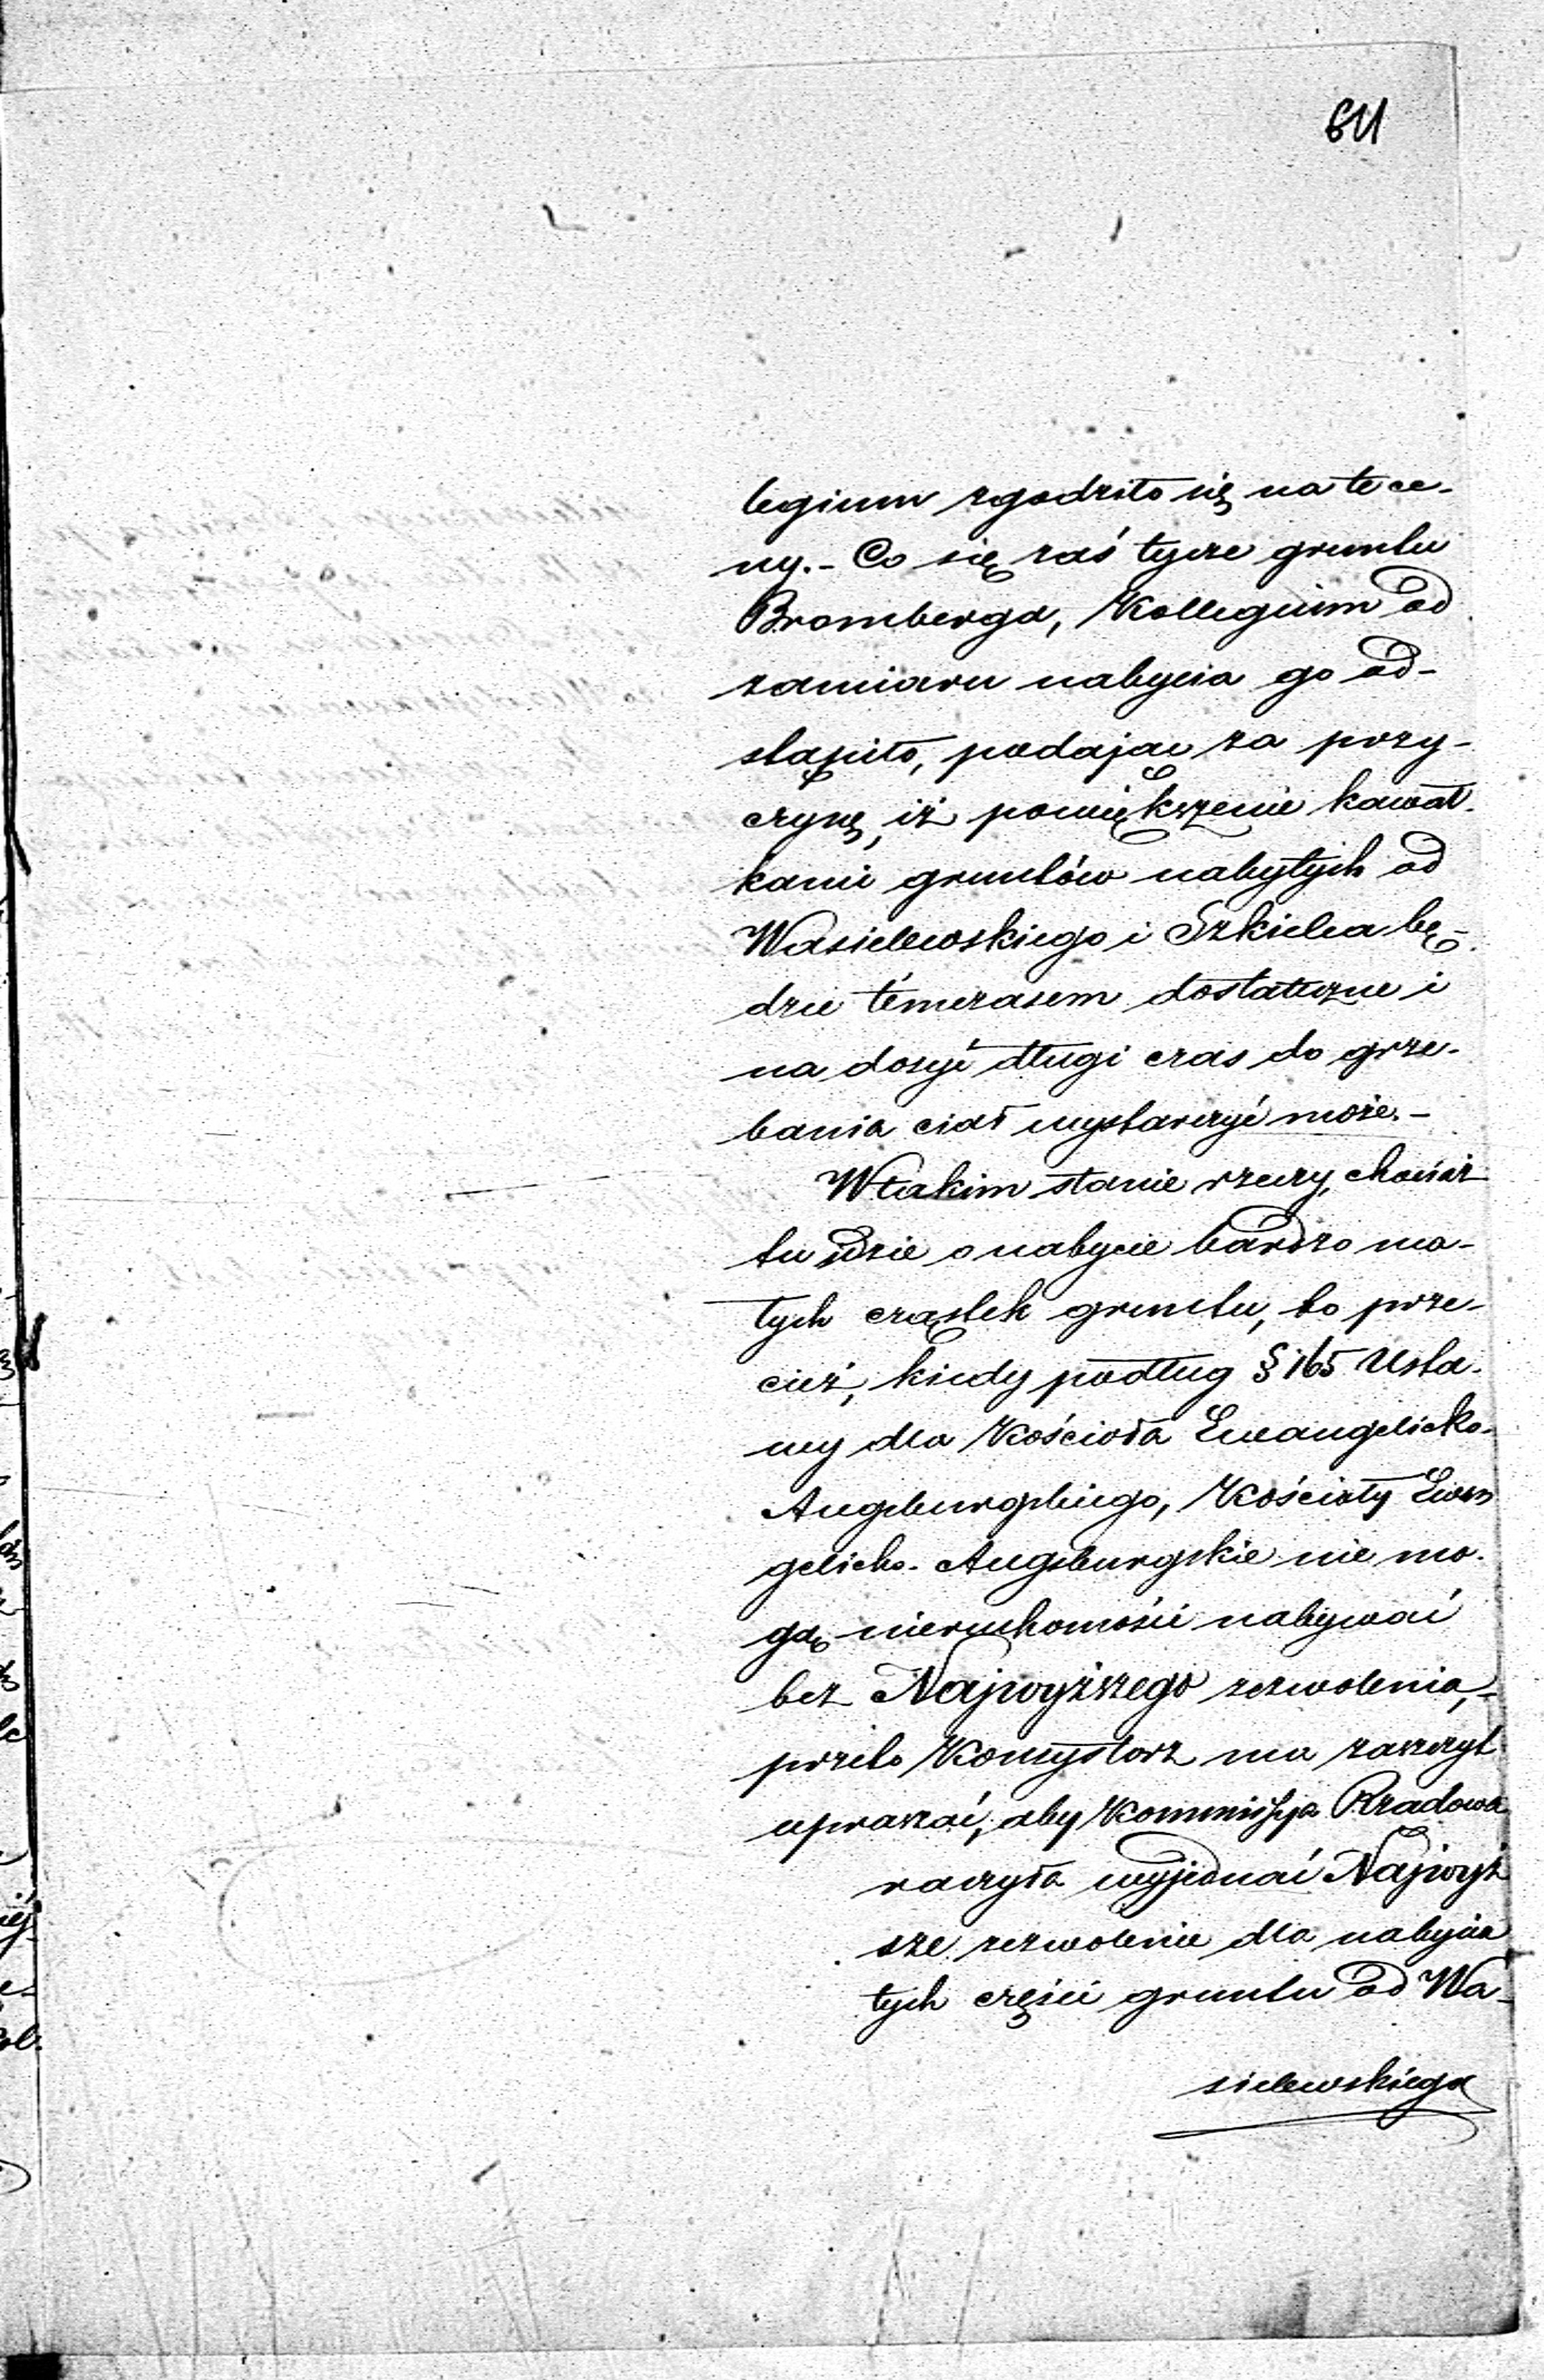 611
legium zgodziło się na te ce-
ny. - Co się zaś tycze gruntu
Bromberga, Kollegium od
zamiaru nabycia go od-
stąpiło, podając za przy-
czynę, iż powiększenie kawał-
kami gruntów nabytych od
Wasielewskiego i Szkielca bę-
dzie témczasem dostateczne i
na dosyć długi czas do grze-
bania ciał wystarczyć może. -
W takim stanie rzeczy, chociaż
tu idzie o nabycie bardzo ma-
łych cząstek gruntu, to prze-
cież, kiedy podług § 165 Usta-
wy dla Kościoła Ewangelicko-
Augsburgskiego, Kościoły Ewan
gelicko-Augsburgskie nie mo-
gą nieruchomości nabywać
bez Najwyższego zezwolenia, -
przeto Konsystorz ma zaszczyt
upraszać, aby Kommissyja Rządowa
raczyła wyjednać Najwyż
sze zezwolenie dla nabycia
tych części gruntu od Wa-
sielewskiego